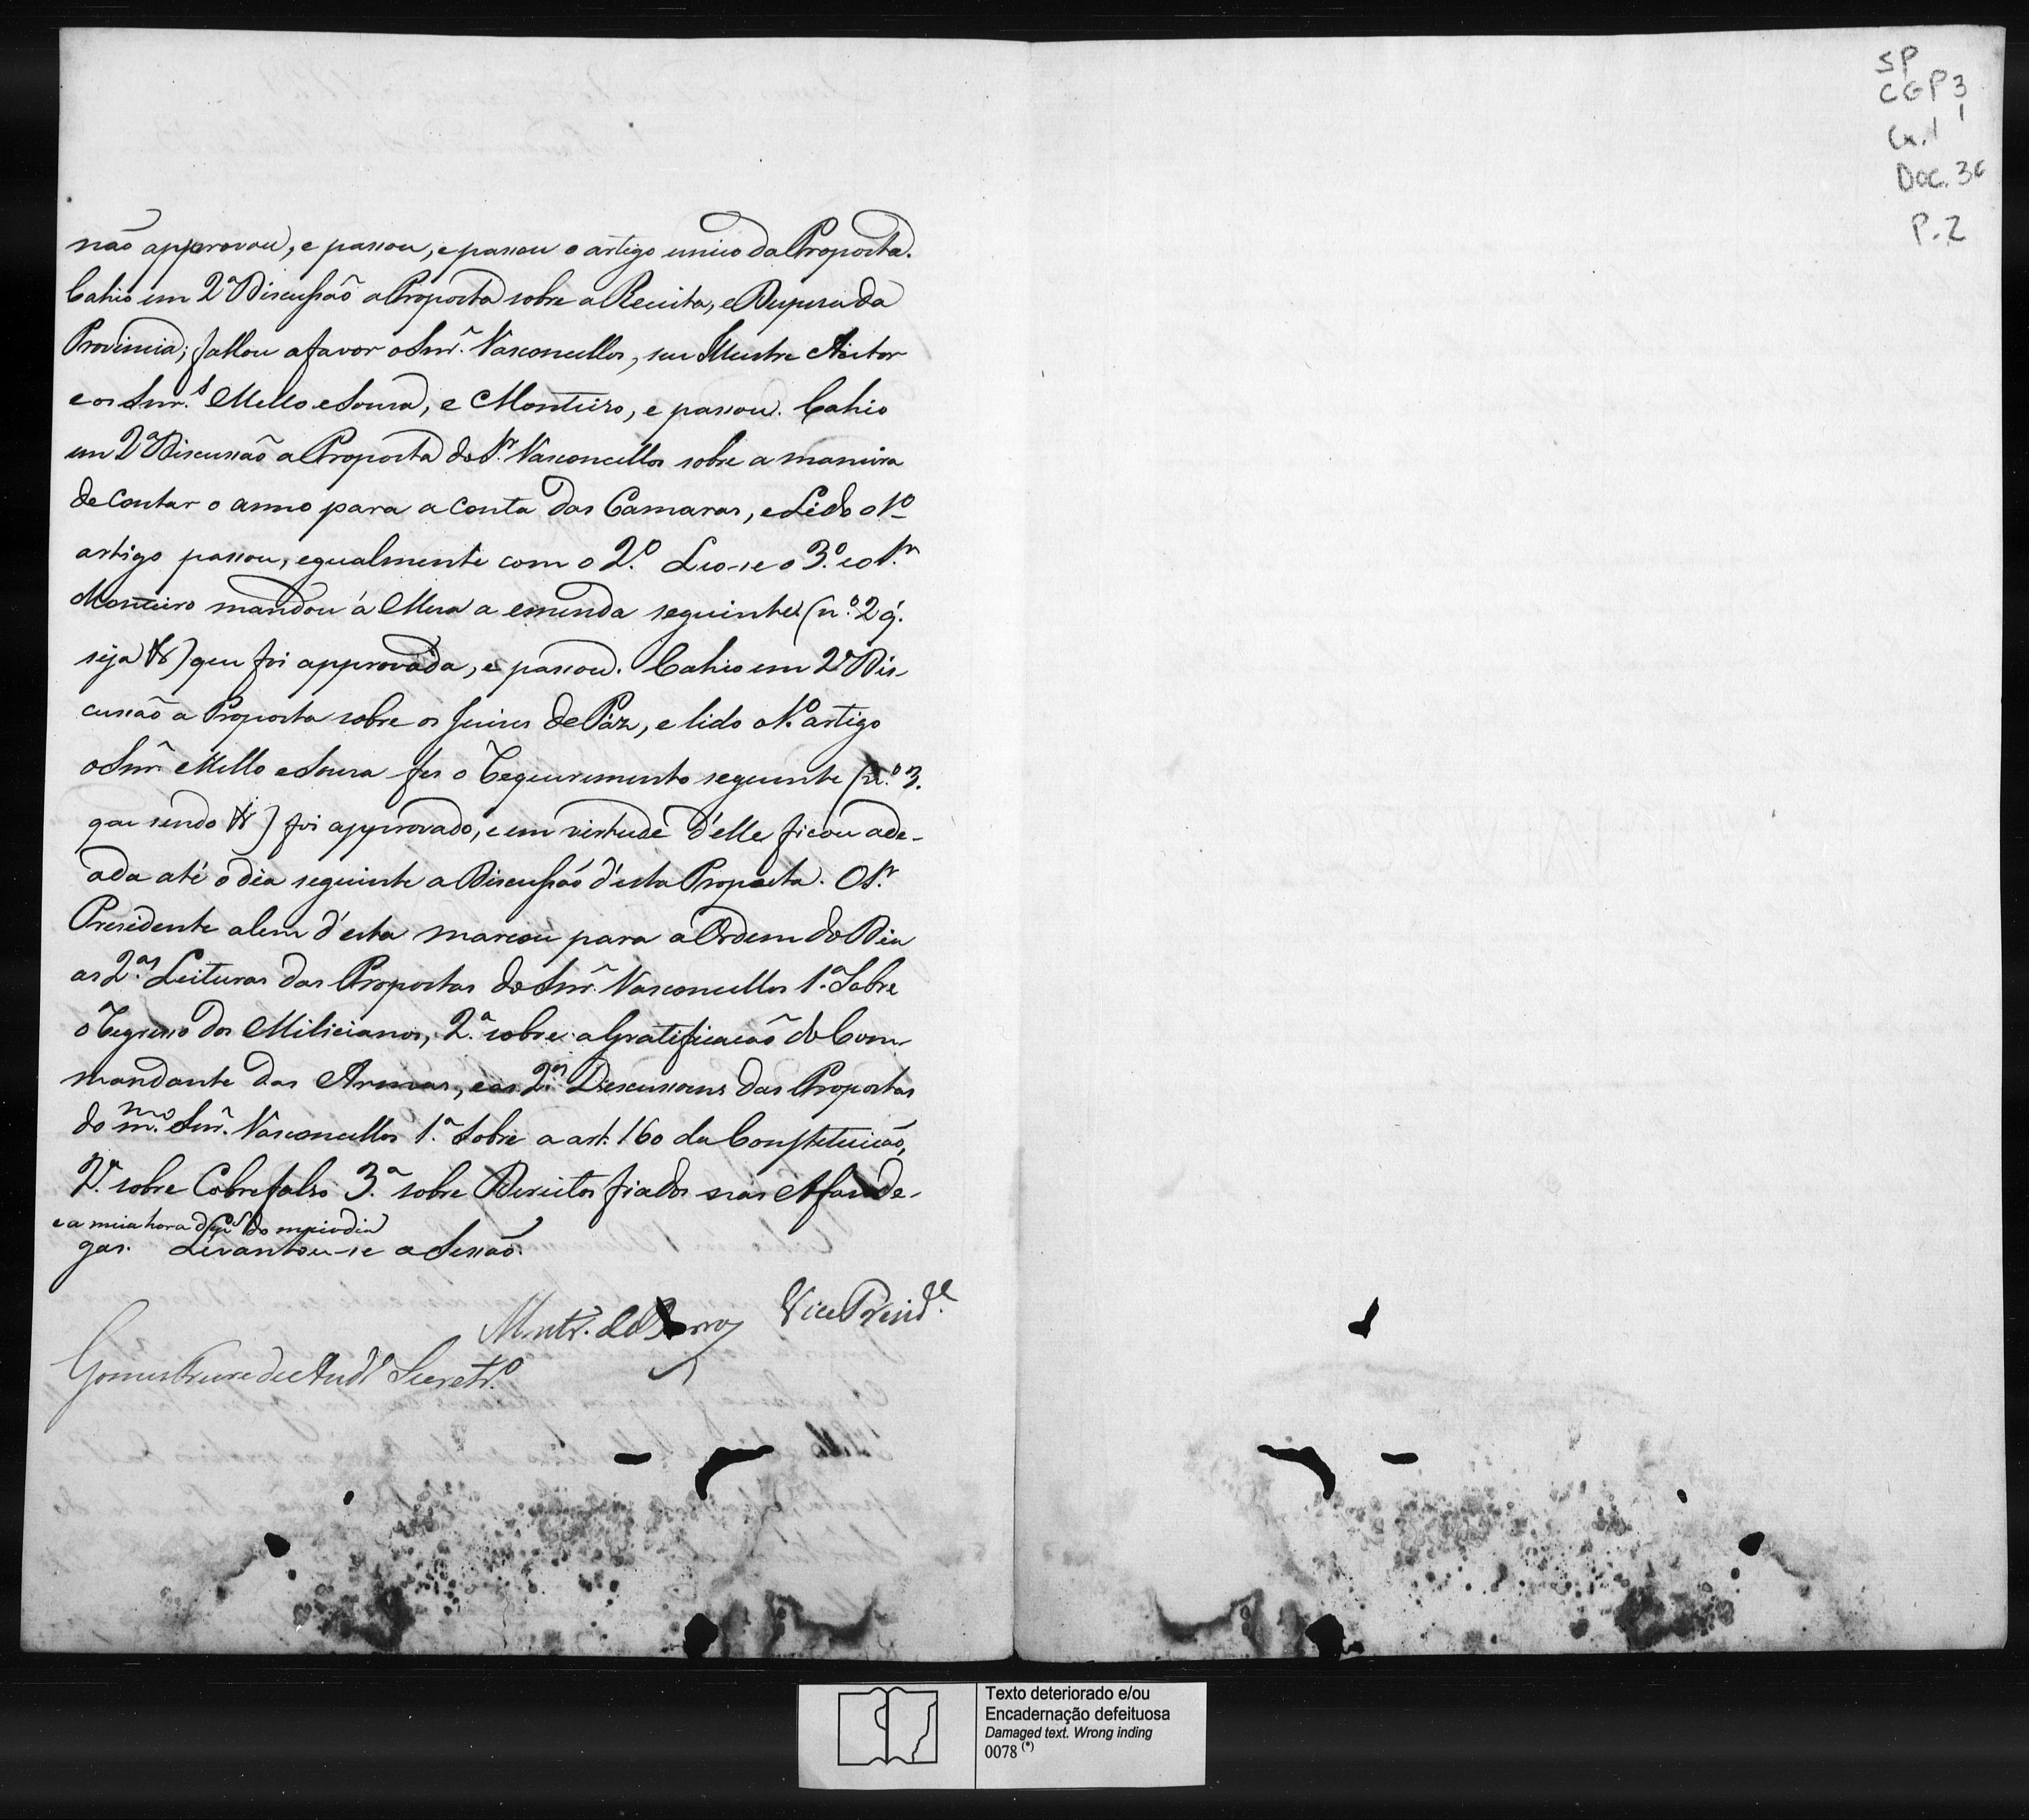 não approvou, e passou, e passou o artigo unico da Proposta.
Cahio em 2ª Discussão a Proposta sobre a Receita, e Despesa da
Provincia; fallou a favor o Snr. Vasconcellos, seu Illustre Autor
e os Snr.s Mello e Sousa, e Monteiro, e passou. Cahio
em 2ª Discussão a Proposta do Sr. Vasconcellos sobre a maneira
de contar o anno para a conta das Camaras, e Lido o 1º
artigo passou, egualmente com o 2.º Leo-se o 3.º e o Sr.
Monteiro mandou á Mesa a emenda seguinte (n.º 2 q.
seja) que foi approvada, e passou. Cahio em 2ª Dis-
cussão a Proposta sobre os Juises de Páz, e lido o 1.º artigo
o Snr. Mello e Sousa fes o Requerimento seguinte (n.º 3.
que sendo) foi approvado, e em virtude d'elle ficou adi-
ada até o dia seguinte a Discussão d'esta Proposta. O Sr.
Presidente alem d'esta marcou para a Ordem do Dia
as 2.as Leituras das Propostas do Snr. Vasconcellos 1.ª Sobre
o Regresso dos Milicianos, 2.ª sobre a Gratificacão do Com-
mandante das Armas, e as 2.as Discussoens das Propostas
do m.mo Snr. Vasconcellos 1.ª Sobre a art. 160 da Constituicão,
2.ª sobre Cobre falso 3.ª sobre Direitos fiados nas Alfande-
e a meia hora do meio dia
gas. Levantou-se a Sessão.
Vice Presid.e
Secretr.º
SP
CGP 3
1
Cx. 1
Doc. 36
P. 2
Texto deteriorado e/ou
Encadernação defeituosa
Damaged text. Wrong inding
0078 (*)